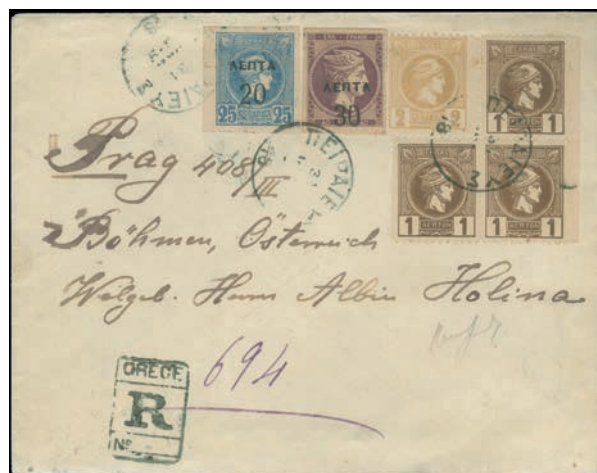 ΛΕΠΤΑ
20
25 25
ΛΕΠΤΑ
30
2 2
1 1
1 1
1 1
ΠΕΙΡΑΙΕΥΣ
Prag 408/III
Böhmen, Österreich
Wolgeb. Herrn Albin Holina
694
GRECE
R
No